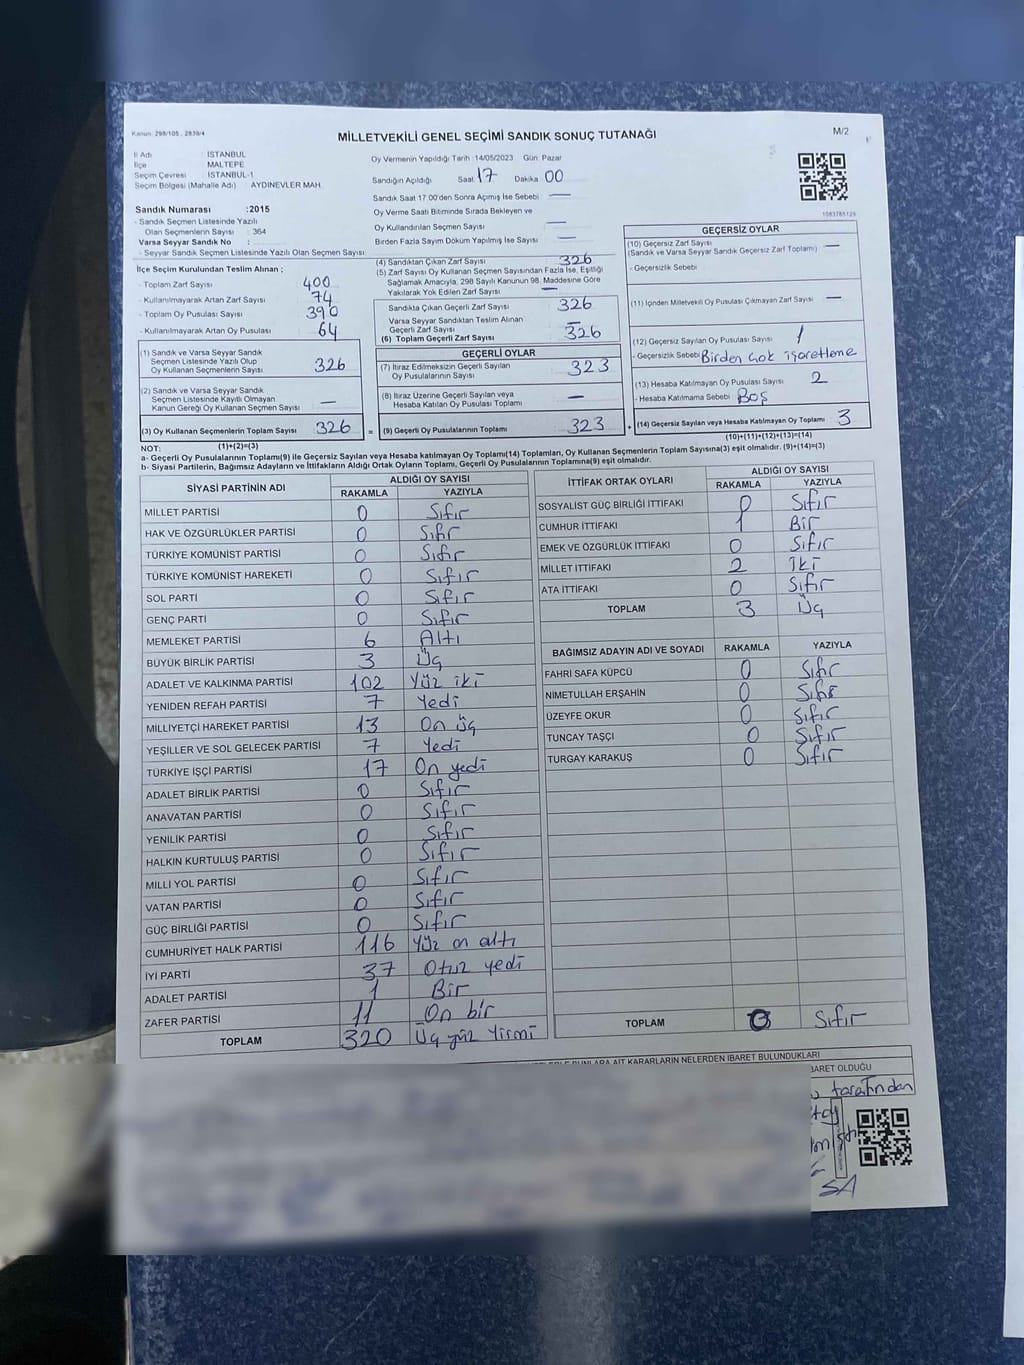 Kanun: 298/105 - 2839/4
MİLLETVEKİLİ GENEL SEÇİMİ SANDIK SONUÇ TUTANAĞI
M/2
İl Adı : İSTANBUL
İlçe : MALTEPE
Seçim Çevresi : İSTANBUL-1
Seçim Bölgesi (Mahalle Adı) AYDINEVLER MAH.
Sandık Numarası :2015
- Sandık Seçmen Listesinde Yazılı
Olan Seçmenlerin Sayısı : 364
Varsa Seyyar Sandık No :
- Seyyar Sandık Seçmen Listesinde Yazılı Olan Seçmen Sayısı:
Oy Vermenin Yapıldığı Tarih :14/05/2023 Gün: Pazar
Sandığın Açıldığı Saat 17 Dakika 00
Sandık Saat 17.00'den Sonra Açımış İse Sebebi —
Oy Verme Saati Bitiminde Sırada Bekleyen ve
Oy Kullandırılan Seçmen Sayısı —
Birden Fazla Sayım Döküm Yapılmış İse Sayısı —
1083785129
İlçe Seçim Kurulundan Teslim Alınan ;
- Toplam Zarf Sayısı 400
- Kullanılmayarak Artan Zarf Sayısı 74
- Toplam Oy Pusulası Sayısı 390
- Kullanılmayarak Artan Oy Pusulası 64
(1) Sandık ve Varsa Seyyar Sandık
Seçmen Listesinde Yazılı Olup
Oy Kullanan Seçmenlerin Sayısı 326
(2) Sandık ve Varsa Seyyar Sandık
Seçmen Listesinde Kayıtlı Olmayan
Kanun Gereği Oy Kullanan Seçmen Sayısı —
(3) Oy Kullanan Seçmenlerin Toplam Sayısı 326
(1)+(2)=(3)
(4) Sandıktan Çıkan Zarf Sayısı 326
(5) Zarf Sayısı Oy Kullanan Seçmen Sayısından Fazla İse, Eşitliği
Sağlamak Amacıyla, 298 Sayılı Kanunun 98. Maddesine Göre
Yakılarak Yok Edilen Zarf Sayısı —
Sandıkta Çıkan Geçerli Zarf Sayısı 326
Varsa Seyyar Sandıktan Teslim Alınan
Geçerli Zarf Sayısı —
(6) Toplam Geçerli Zarf Sayısı 326
GEÇERLİ OYLAR
(7) İtiraz Edilmeksizin Geçerli Sayılan
Oy Pusulalarının Sayısı 323
(8) İtiraz Üzerine Geçerli Sayılan veya
Hesaba Katılan Oy Pusulası Toplamı —
= (9) Geçerli Oy Pusulalarının Toplamı 323
GEÇERSİZ OYLAR
(10) Geçersiz Zarf Sayısı —
(Sandık ve Varsa Seyyar Sandık Geçersiz Zarf Toplamı)
- Geçersizlik Sebebi
(11) İçinden Milletvekili Oy Pusulası Çıkmayan Zarf Sayısı —
(12) Geçersiz Sayılan Oy Pusulası Sayısı 1
- Geçersizlik Sebebi Birden çok işaretleme
(13) Hesaba Katılmayan Oy Pusulası Sayısı 2
- Hesaba Katılmama Sebebi Boş
+ (14) Geçersiz Sayılan veya Hesaba Katılmayan Oy Toplamı 3
(10)+(11)+(12)+(13)=(14)
NOT:
a- Geçerli Oy Pusulalarının Toplamı(9) ile Geçersiz Sayılan veya Hesaba katılmayan Oy Toplamı(14) Toplamları, Oy Kullanan Seçmenlerin Toplam Sayısına(3) eşit olmalıdır. (9)+(14)=(3)
b- Siyasi Partilerin, Bağımsız Adayların ve İttifakların Aldığı Ortak Oyların Toplamı, Geçerli Oy Pusulalarının Toplamına(9) eşit olmalıdır.
SİYASİ PARTİNİN ADI ALDIĞI OY SAYISI
RAKAMLA YAZIYLA
MİLLET PARTİSİ 0 Sıfır
HAK VE ÖZGÜRLÜKLER PARTİSİ 0 Sıfır
TÜRKİYE KOMÜNİST PARTİSİ 0 Sıfır
TÜRKİYE KOMÜNİST HAREKETİ 0 Sıfır
SOL PARTİ 0 Sıfır
GENÇ PARTİ 0 Sıfır
MEMLEKET PARTİSİ 6 Altı
BÜYÜK BİRLİK PARTİSİ 3 Üç
ADALET VE KALKINMA PARTİSİ 102 Yüz iki
YENİDEN REFAH PARTİSİ 7 Yedi
MİLLİYETÇİ HAREKET PARTİSİ 13 On üç
YEŞİLLER VE SOL GELECEK PARTİSİ 7 Yedi
TÜRKİYE İŞÇİ PARTİSİ 17 On yedi
ADALET BİRLİK PARTİSİ 0 Sıfır
ANAVATAN PARTİSİ 0 Sıfır
YENİLİK PARTİSİ 0 Sıfır
HALKIN KURTULUŞ PARTİSİ 0 Sıfır
MİLLİ YOL PARTİSİ 0 Sıfır
VATAN PARTİSİ 0 Sıfır
GÜÇ BİRLİĞİ PARTİSİ 0 Sıfır
CUMHURİYET HALK PARTİSİ 116 Yüz on altı
İYİ PARTİ 37 Otuz yedi
ADALET PARTİSİ 1 Bir
ZAFER PARTİSİ 11 On bir
TOPLAM 320 Üç yüz Yirmi
İTTİFAK ORTAK OYLARI ALDIĞI OY SAYISI
RAKAMLA YAZIYLA
SOSYALİST GÜÇ BİRLİĞİ İTTİFAKI 0 Sıfır
CUMHUR İTTİFAKI 1 Bir
EMEK VE ÖZGÜRLÜK İTTİFAKI 0 Sıfır
MİLLET İTTİFAKI 2 İki
ATA İTTİFAKI 0 Sıfır
TOPLAM 3 Üç
BAĞIMSIZ ADAYIN ADI VE SOYADI RAKAMLA YAZIYLA
FAHRİ SAFA KÜPCÜ 0 Sıfır
NİMETULLAH ERŞAHİN 0 Sıfır
ÜZEYFE OKUR 0 Sıfır
TUNCAY TAŞÇI 0 Sıfır
TURGAY KARAKUŞ 0 Sıfır
TOPLAM 0 Sıfır
BUNLARA AİT KARARLARIN NELERDEN İBARET BULUNDUKLARI
BARET OLDUĞU
tarafından
SA